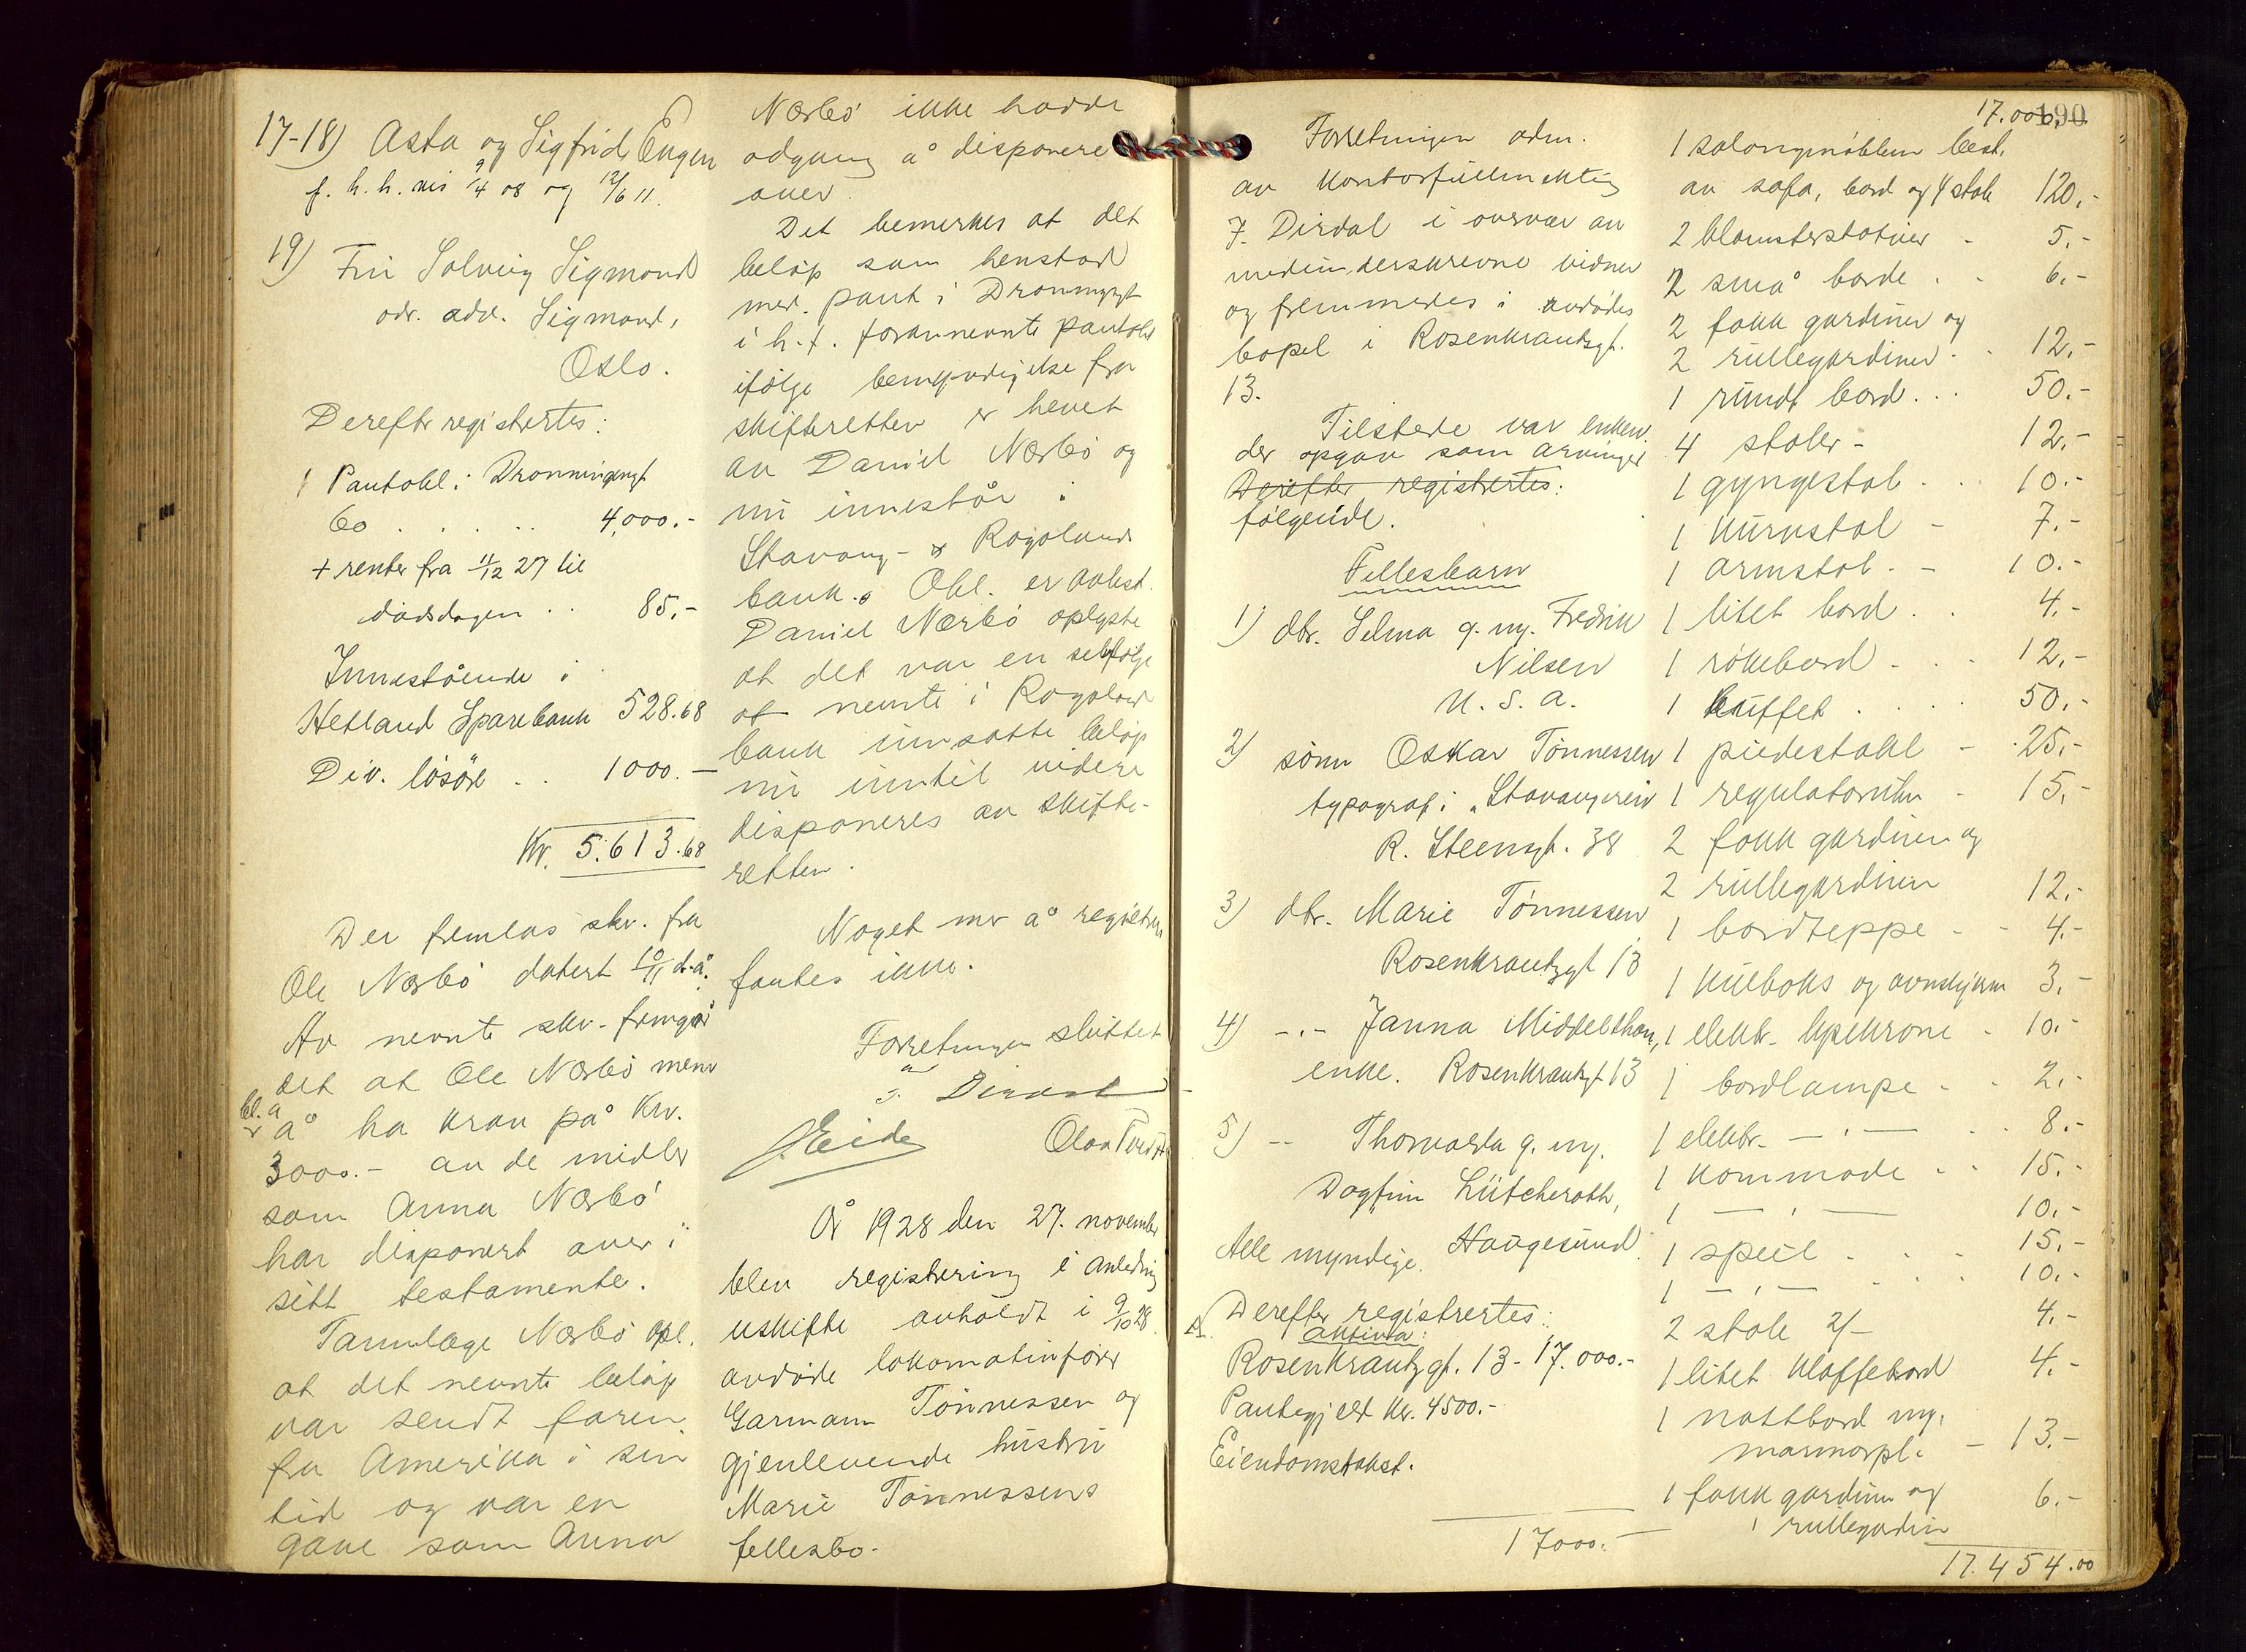 17-18) Asta og Sigfrid Engen
f. h. h. vis 9/4 08 og 12/6 11.
19) Frü Solveig Sigmond
adr. adv. Sigmond,
Oslo.
Derefter registrertes:
1 Pantobl. i Dronningensgt
60 . . . . . 4,000.-
+ renter fra 11/12 27 til
dødsdagen . . 85.-
Innestående i
Hetland Sparebank 528.68
Div. løsöre . . 1000.-
Kr. 5.613.68
Der fremlas skr. fra
Ole Nærbö datert 10/11 d.å.
Av nevnte skr. fremgår
det at Ole Nærbö mener
bl. a
å ha krav på Kr.
3000.- av de midler
som Anna Nærbö
har disponert over i
sitt testamente.
Tannlæge Nærbö opl.
at det nevnte beløp
var sendt faren
fra Amerika i sin
tid og var en
gave som Anna
Nærbö ikke hadde
adgang å disponere
over.
Det bemerkes at det
beløp som henstod
med pant i Dronninggt
i h. t. forannevnte pantobl
ifölge bemyndigelse fra
skifteretten er hevet
av Daniel Nærbö og
nü innestår i
Stavang- & Rogalands
bank. Obl. er avlest.
Daniel Nærbö oplyste
at det var en selvfølge
at nevnte i Rogaland
bank innsatte beløp
nü inntil videre
disponeres av skifte-
retten.
Noget mer å registrere
fantes ikke.
Forretningen sluttet
J. Dirdal
J. Eide Olav
År 1928 den 27. november
blev registrering i anledning
uskifte avholdt i 9/10 28
avdøde lokomotivfører
Garmann Tønnessen og
gjenlevende hüstrü
Marie Tønnessens
fellesbo.
190
Forretningen adm.
av kontorfüllmektig
J. Dirdal i overvær av
medündersk­revne vidner
og fremmedes i avdødes
bopel i Rosenkrantzgt.
13.
Tilstede var enken
der opgav som arvinger
Derefter registrertes:
følgende.
Fellesbarn
1) dtr. Selma g. m. Fredrik
Nilsen
U. S. A.
2) sönn Oskar Tønnessen
typograf i "Stavangeren
R. Steensgt. 38
3) dtr. Marie Tønnessen
Rosenkrantzgt 13
4) -"- Janna Middelthon,
enke. Rosenkrantzgt 13
5) -- Thomasda g. m.
Dagfinn Lütcherath,
Haugesund.
Alle myndige.
Derefter registrertes:
A. aktiva:
Rosenkrantzgt. 13 - 17.000.-
Pantegjeld kr. 4500.-
Eiendomstakst.
17000.-
17.000.-
1 salongmöblem. best.
av sofa, bord og 4 stole 120.-
2 blomsterstativer - 5.-
2 små borde . - 6.-
2 fakk gardiner og
2 rüllegardiner . . 12.-
1 ründt bord . . . 50.-
4 stoler - 12.-
1 gyngestol . . 10.-
1 kürvstol - 7.-
1 armstol . - 10.-
1 litet bord . . 4.-
1 rökebord . . . 12.-
1 büffet . . . . 50.-
1 piedestahl - . 25.-
1 regulatorühr - 15.-
2 fakk gardiner og
2 rüllegardiner 12.-
1 bordteppe - - 4.-
1 külboks og ovnskjerm 3.-
1 elektr. lysekrone - 10.-
1 bordlampe - - 2.-
1 elektr. -"- . . 8.-
1 kommode - . 15.-
1 -"- 10.-
1 speil . . . 15.-
1 -"- . . . 10.-
2 stole 2/- 4.-
1 litet klaffebord 4.-
1 nattbord m.
marmorpl. - 13.-
1 fakk gardiner og 6.-
1 rüllegardin
17.454.00